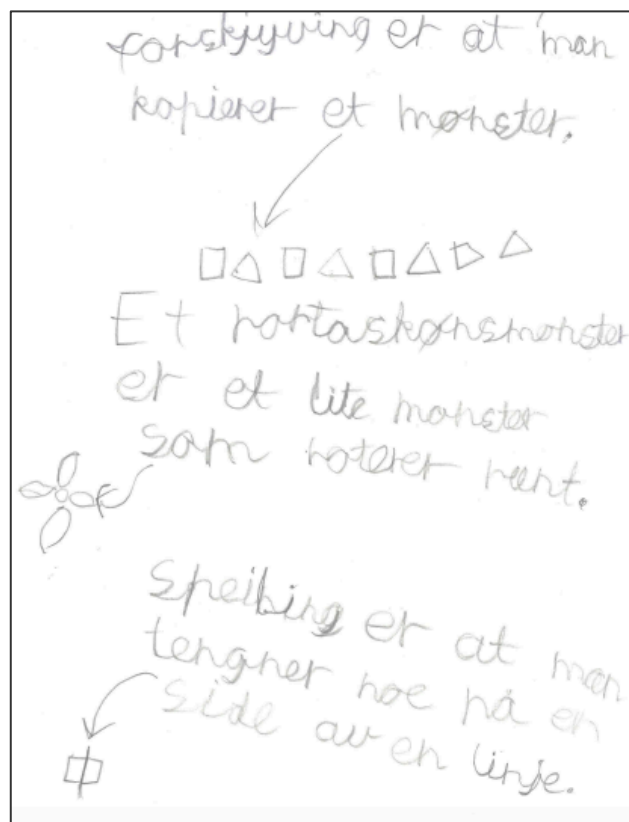 forskjyving er at man
kopierer et mønster.
Et rortaskønsmønster
er et lite mønster
som roterer runt.
Speiling er at man
tengner noe på en
side av en linje.